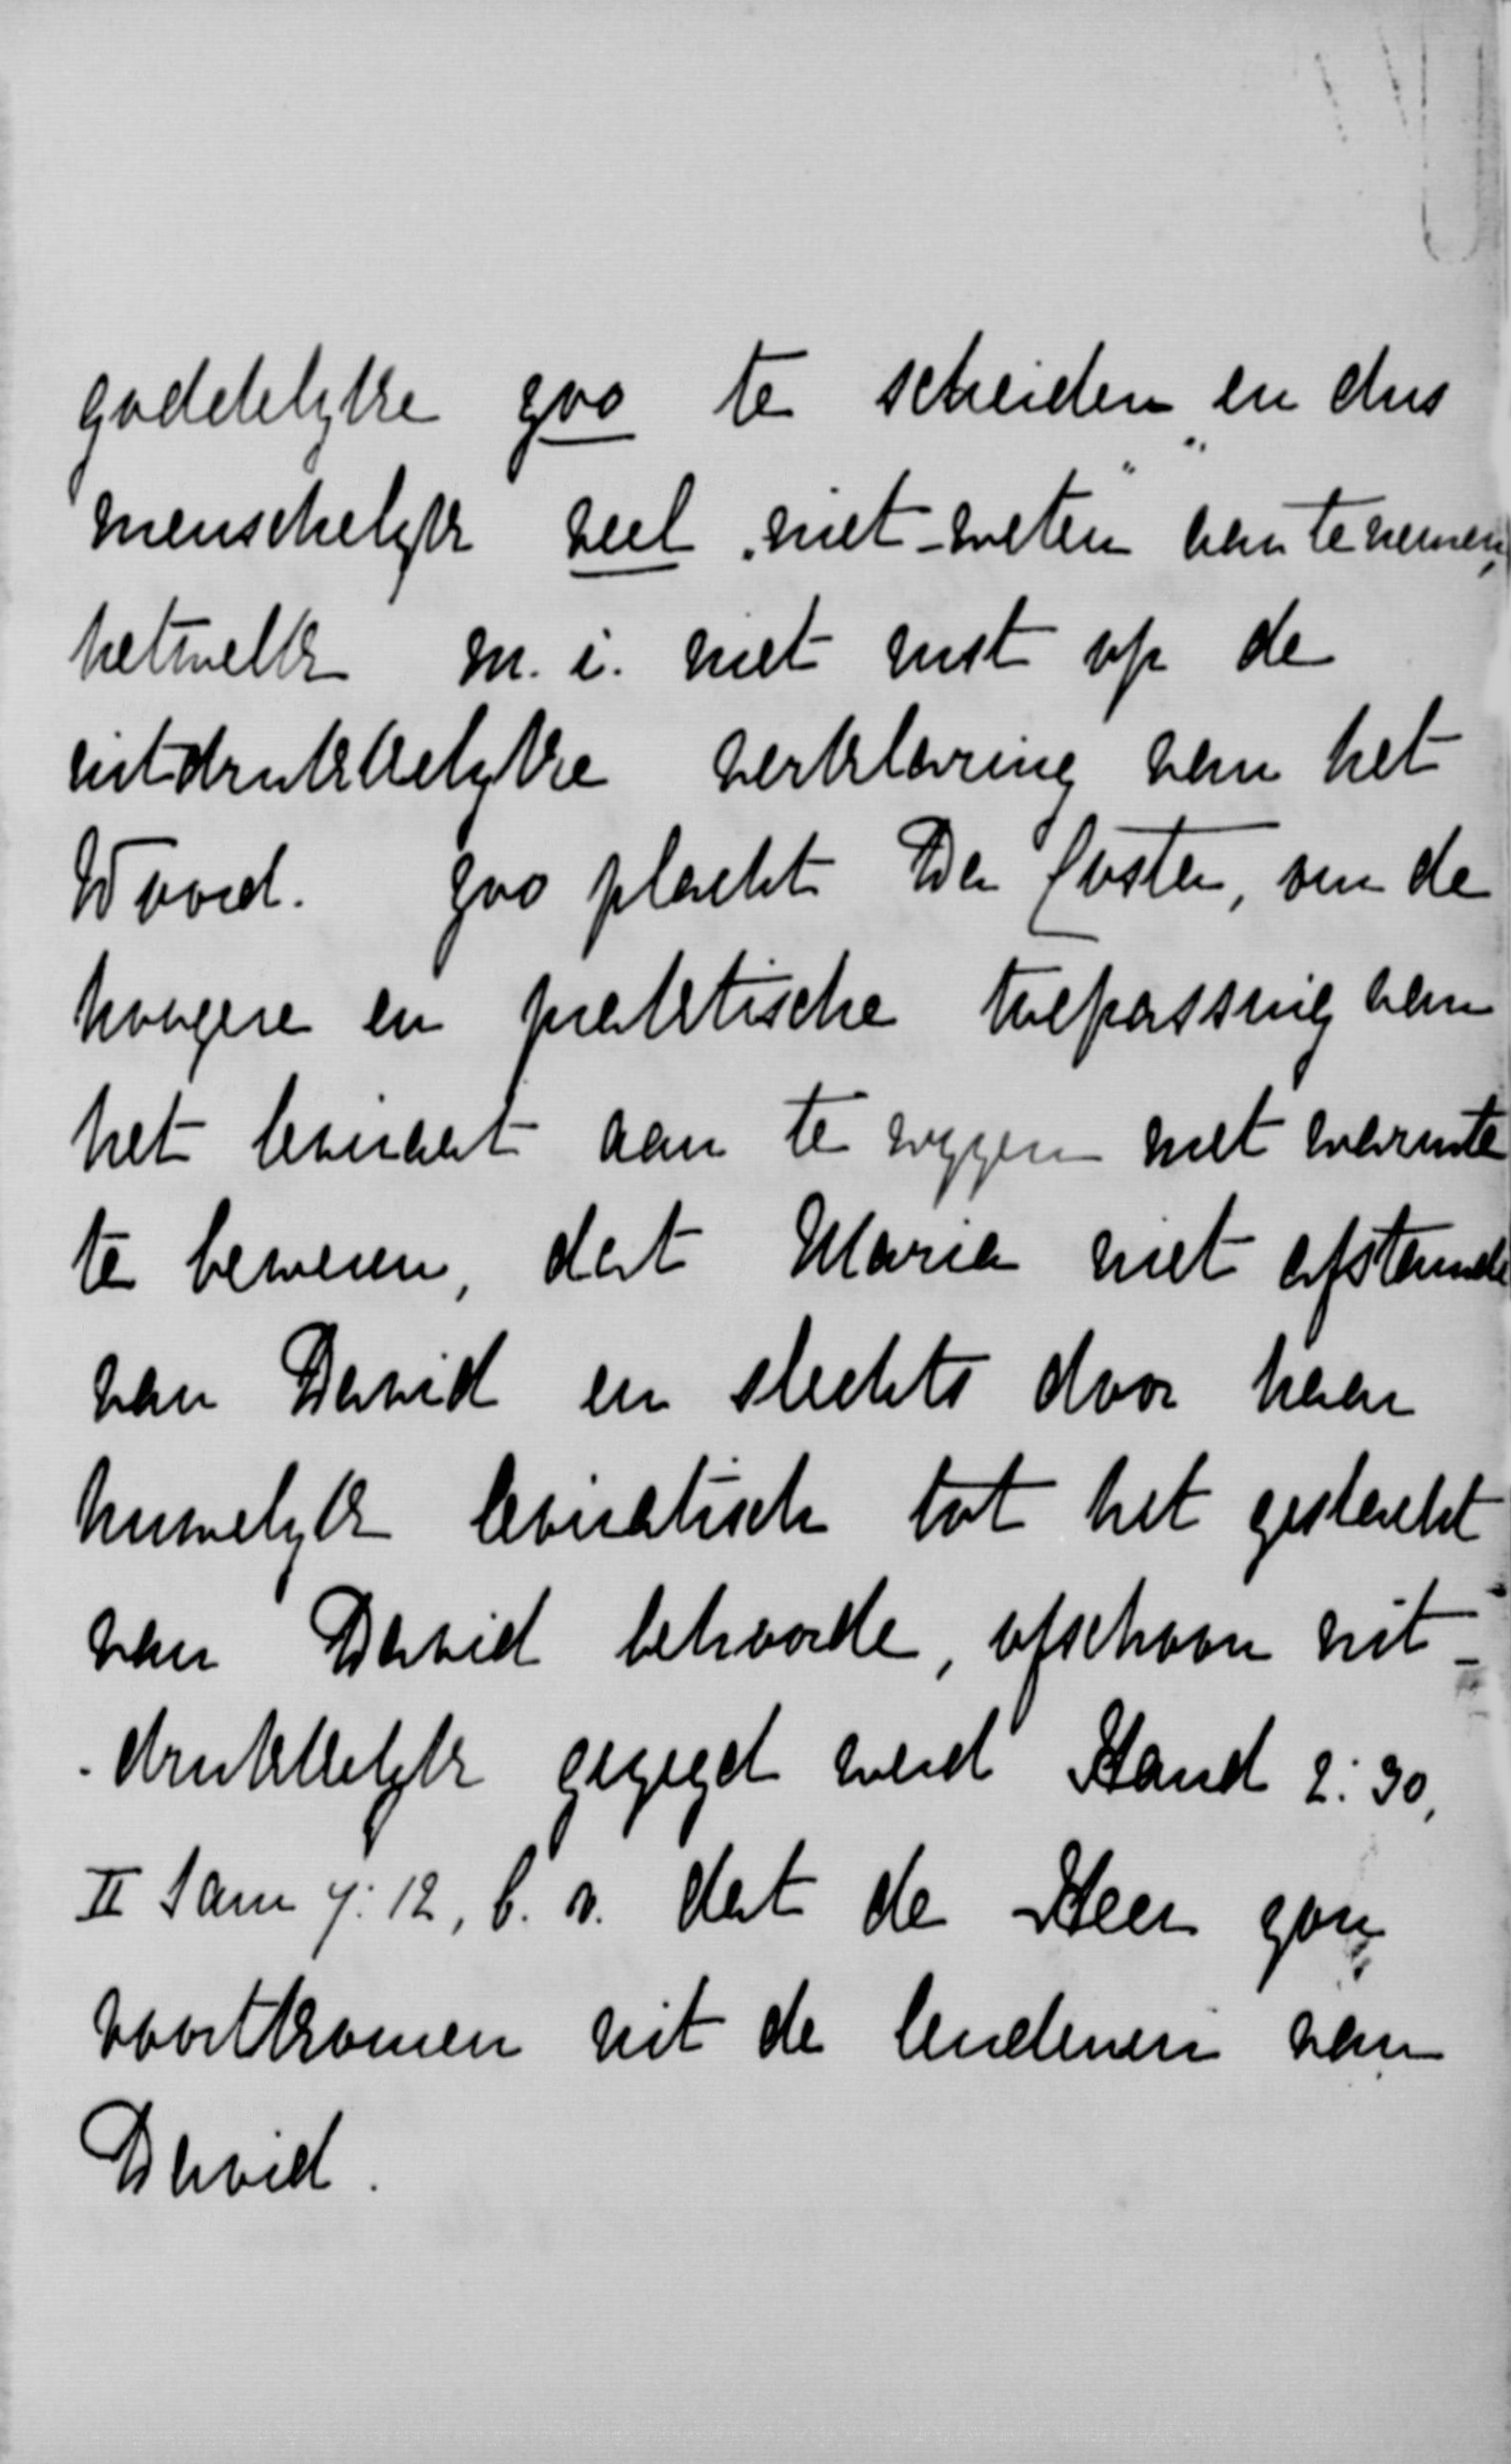 goddelijke zoo te scheiden en dus
menschelijk veel „niet-weten” aan te nemen,
hetwelk m. i. niet rust op de
uitdrukkelijke verklaring van het
Woord. Zoo placht Da Costa, om de
hoogere en praktische toepassing van
het leviraat aan te wijzen met warmte
te beweren, dat Maria niet afstamde
van David en slechts door haar
huwelijk leviratisch tot het geslacht
van David behoorde, ofschoon uit-
-drukkelijk gezegd werd Hand 2:30,
II Sam 7:12, b. v. dat de Heer zou
voortkomen uit de lendenen van
David.